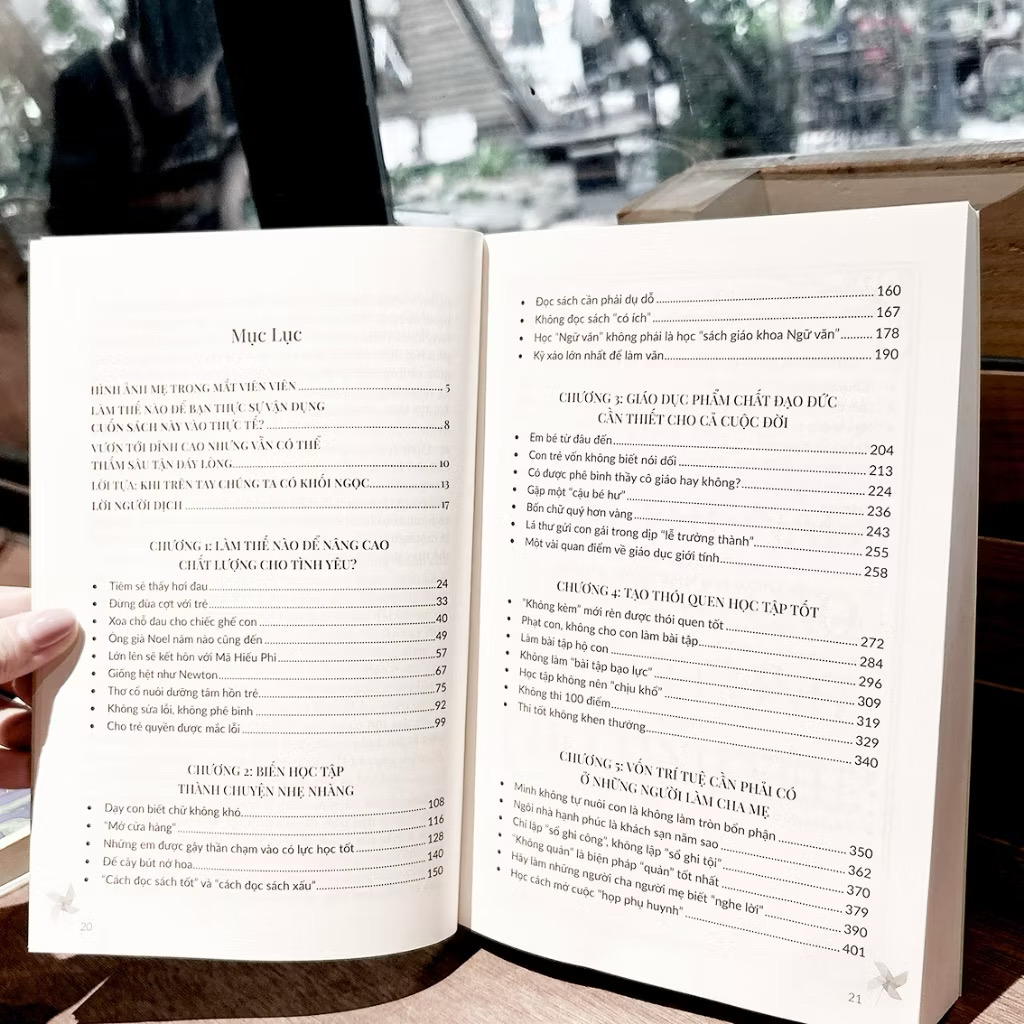 Mục Lục
HÌNH ẢNH MẸ TRONG MẮT VIÊN VIÊN 5
LÀM THẾ NÀO ĐỂ BẠN THỰC SỰ VẬN DỤNG
CUỐN SÁCH NÀY VÀO THỰC TẾ? 8
VƯƠN TỚI ĐỈNH CAO NHƯNG VẪN CÓ THỂ
THẤM SÂU TẬN ĐÁY LÒNG 10
LỜI TỰA: KHI TRÊN TAY CHÚNG TA CÓ KHỐI NGỌC 13
LỜI NGƯỜI DỊCH 17
CHƯƠNG 1: LÀM THẾ NÀO ĐỂ NÂNG CAO
CHẤT LƯỢNG CHO TÌNH YÊU?
• Tiêm sẽ thấy hơi đau 24
• Đừng đùa cợt với trẻ 33
• Xoa chỗ đau cho chiếc ghế con 40
• Ông già Noel năm nào cũng đến 49
• Lớn lên sẽ kết hôn với Mã Hiểu Phi 57
• Giống hệt như Newton 67
• Thơ cổ nuôi dưỡng tâm hồn trẻ 75
• Không sửa lỗi, không phê bình 92
• Cho trẻ quyền được mắc lỗi 99
CHƯƠNG 2: BIẾN HỌC TẬP
THÀNH CHUYỆN NHẸ NHÀNG
• Dạy con biết chữ không khó 108
• "Mở cửa hàng" 116
• Những em được gậy thần chạm vào có lực học tốt 128
• Để cây bút nở hoa 140
• "Cách đọc sách tốt" và "cách đọc sách xấu" 150
20
• Đọc sách cần phải dụ dỗ 160
• Không đọc sách "có ích" 167
• Học "Ngữ văn" không phải là học "sách giáo khoa Ngữ văn" 178
• Kỹ xảo lớn nhất để làm văn 190
CHƯƠNG 3: GIÁO DỤC PHẨM CHẤT ĐẠO ĐỨC
CẦN THIẾT CHO CẢ CUỘC ĐỜI
• Em bé từ đâu đến 204
• Con trẻ vốn không biết nói dối 213
• Có được phê bình thầy cô giáo hay không? 224
• Gặp một "cậu bé hư" 236
• Bốn chữ quý hơn vàng 243
• Lá thư gửi con gái trong dịp "lễ trưởng thành" 255
• Một vài quan điểm về giáo dục giới tính 258
CHƯƠNG 4: TẠO THÓI QUEN HỌC TẬP TỐT
• "Không kèm" mới rèn được thói quen tốt 272
• Phạt con, không cho con làm bài tập 284
• Làm bài tập hộ con 296
• Không làm "bài tập bạo lực" 309
• Học tập không nên "chịu khổ" 319
• Không thi 100 điểm 329
• Thi tốt không khen thưởng 340
CHƯƠNG 5: VỐN TRÍ TUỆ CẦN PHẢI CÓ
Ở NHỮNG NGƯỜI LÀM CHA MẸ
• Mình không tự nuôi con là không làm tròn bổn phận 350
• Ngôi nhà hạnh phúc là khách sạn năm sao 362
• Chỉ lập "sổ ghi công", không lập "sổ ghi tội" 370
• "Không quản" là biện pháp "quản" tốt nhất 379
• Hãy làm những người cha người mẹ biết "nghe lời" 390
• Học cách mở cuộc "họp phụ huynh" 401
21